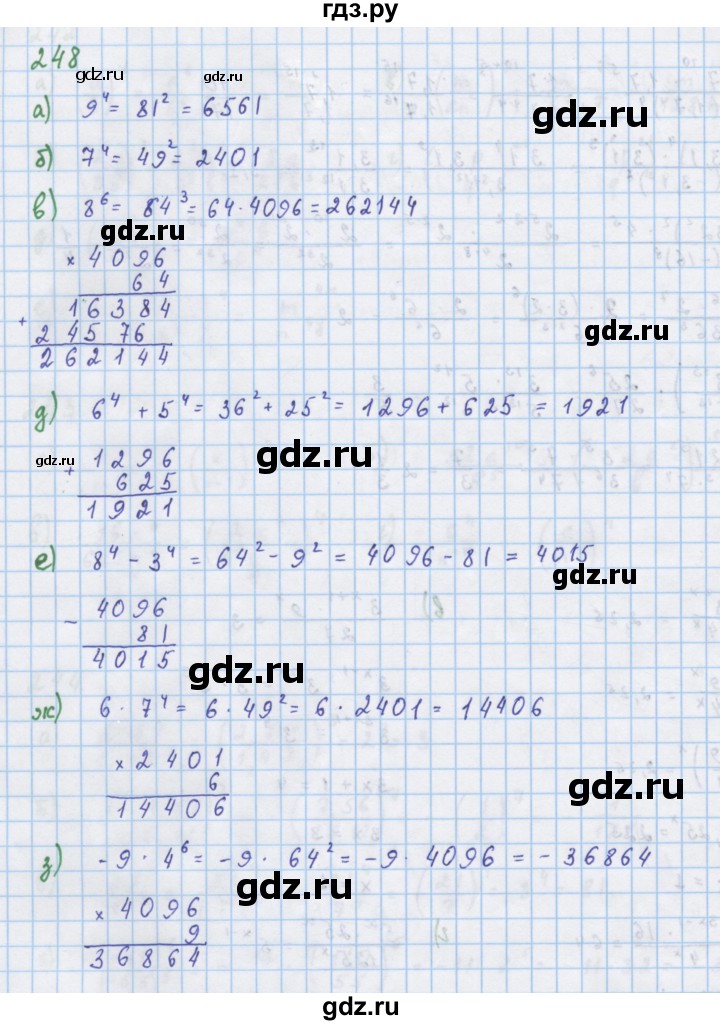 гдз.ру
248
gdz.ru gdz.ru
а) 9⁴ = 81² = 6561
gdz.ru
б) 7⁴ = 49² = 2401
в) 8⁶ = 84³ = 64 · 4096 = 262144
gdz.ru
× 4096
64
+ 16384
24576
262144
gdz.ru
д) 6⁴ + 5⁴ = 36² + 25² = 1296 + 625 = 1921
gdz.ru gdz.ru
+ 1296
625
1921
е) 8⁴ - 3⁴ = 64² - 9² = 4096 - 81 = 4015
gdz.ru
- 4096
81
4015
gdz.ru
ж) 6 · 7⁴ = 6 · 49² = 6 · 2401 = 14406
× 2401
6
14406
gdz.ru
з) -9 · 4⁶ = -9 · 64² = -9 · 4096 = -36864
gdz.ru
× 4096
9
36864
gdz.ru